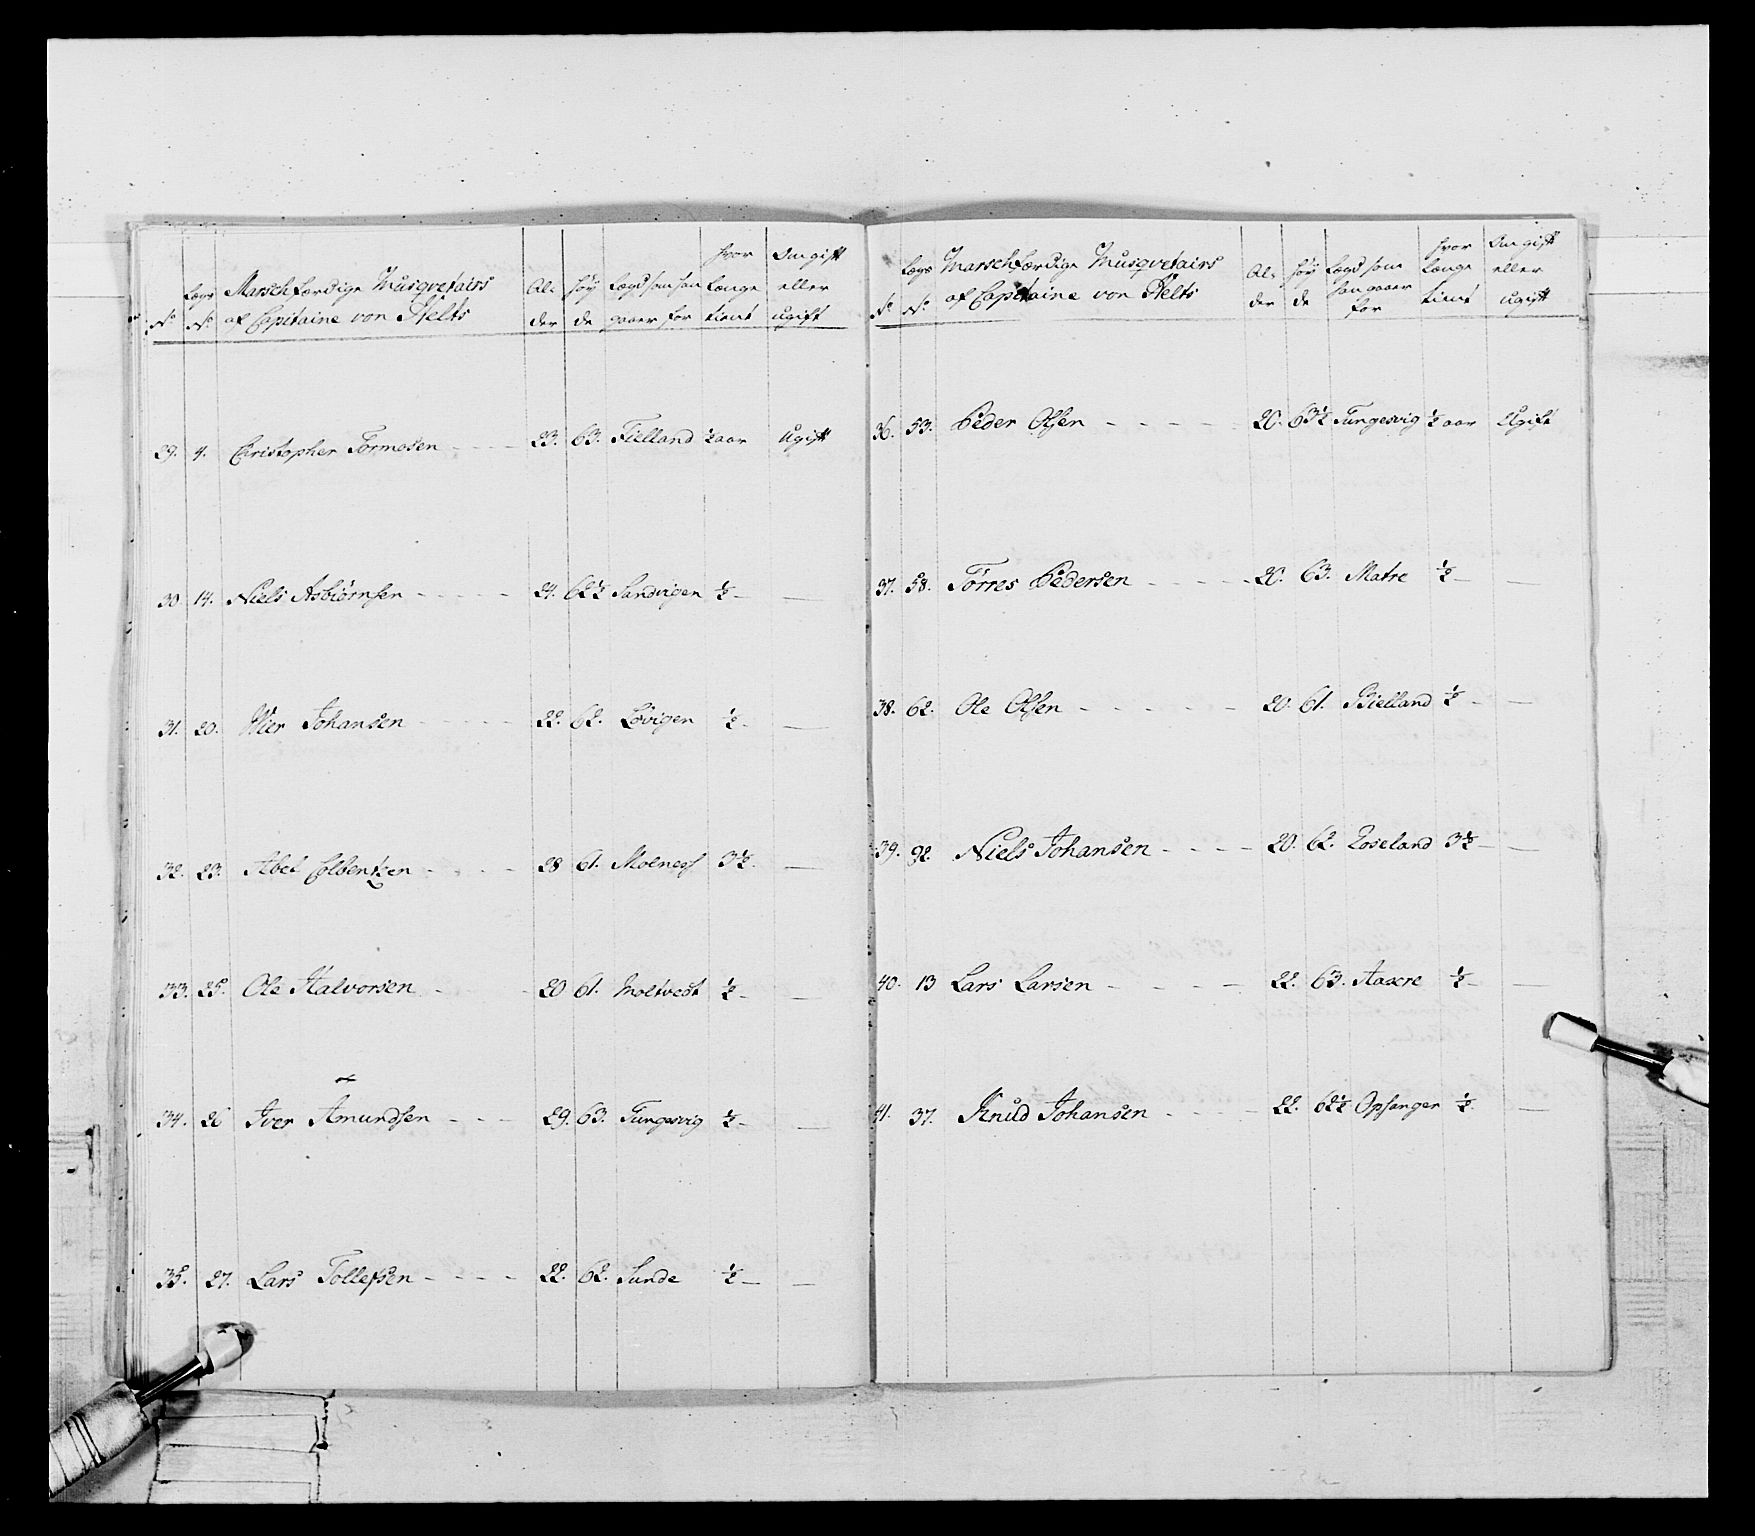 No. Lægs No. Marschfærdige Musqvetairs af Capitaine von Stelts Al: der Høy de Lægd som han gaaer for hvor længe tient Om gift eller ugift
29. 4. Christopher Tormosen 23. 63. Fielland ½ aar Ugift
30 14. Niels Asbiørnsen 24. 62½ Sandvigen ½ —
31. 20. Wier Johansen 22. 62. Løvigen ½ —
32. 23. Abel Colbentzen 28 61. Moenes 3½ —
33. 25. Ole Halvorsen 20 61. Moltvedt ½ —
34. 26 Iver Amundsen 29. 63. Tungesvig ½ —
35. 27. Lars Tollefsen 22. 62. Sunde ½ —
No. Lægs No. Marschfærdige Musqvetairs af Capitaine von Stelts Al: der Høy de Lægd som han gaaer for hvor længe tient Om gift eller ugift
36. 53. Peder Olsen 20. 63½ Tungesvig ½ aar Ugift
37. 58. Tørres Pedersen 20. 63. Matre ½ —
38. 62. Ole Olsen 20. 61. Bielland ½ —
39. 92. Niels Johansen 20. 62. Roseland 3½ —
40. 13 Lars Larsen 22. 63. Aacre ½ —
41. 37. Knud Johansen 22. 62½ Opsanger ½ —